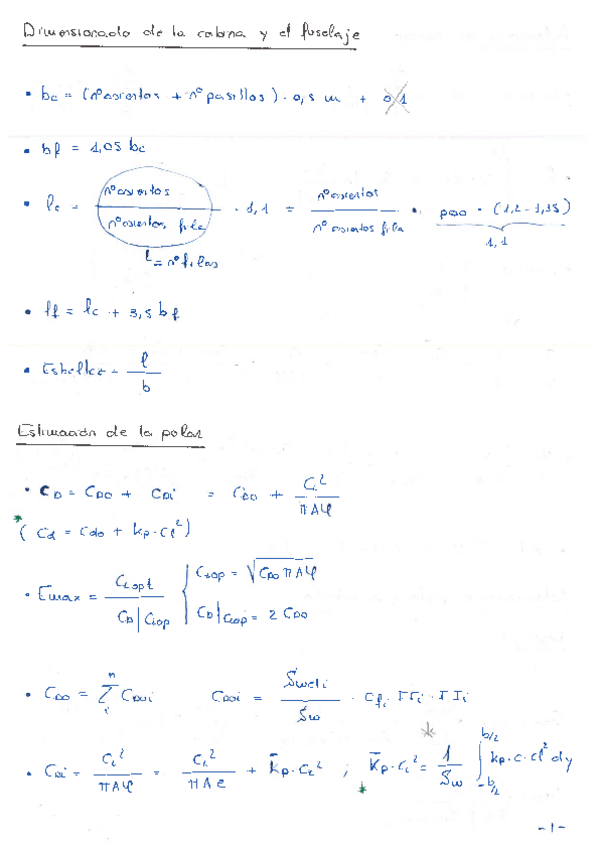 Dimensionado de la cabina y el fuselaje
• bc = (nº asientos + nº pasillos) · 0,5 m +
• bf = 1,05 bc
• lc = nº asientos / nº asientos fila · 1,1 = nº asientos / nº asientos fila · paso · (1,2 - 1,35)
1,1
= nº filas
• lf = lc + 3,5 bf
• Esbeltez = l / b
Estimación de la polar
• CD = CD0 + CDi = CD0 + CL² / πAφ
* (Cd = Cd0 + kp·Cl²)
• Emax = CLopt / CD|CLop { CLop = √CD0 πAφ
CD|CLop = 2 CD0
• CD0 = Σ CD0i CD0i = Sweti / Sw · Cfi · FFi · FIi
• CDi = CL² / πAφ = CL² / πAe + k̄p·CL² ; k̄p·CL² = 1 / Sw ∫ kp·c·Cl² dy
b/2
-b/2
- 1 -